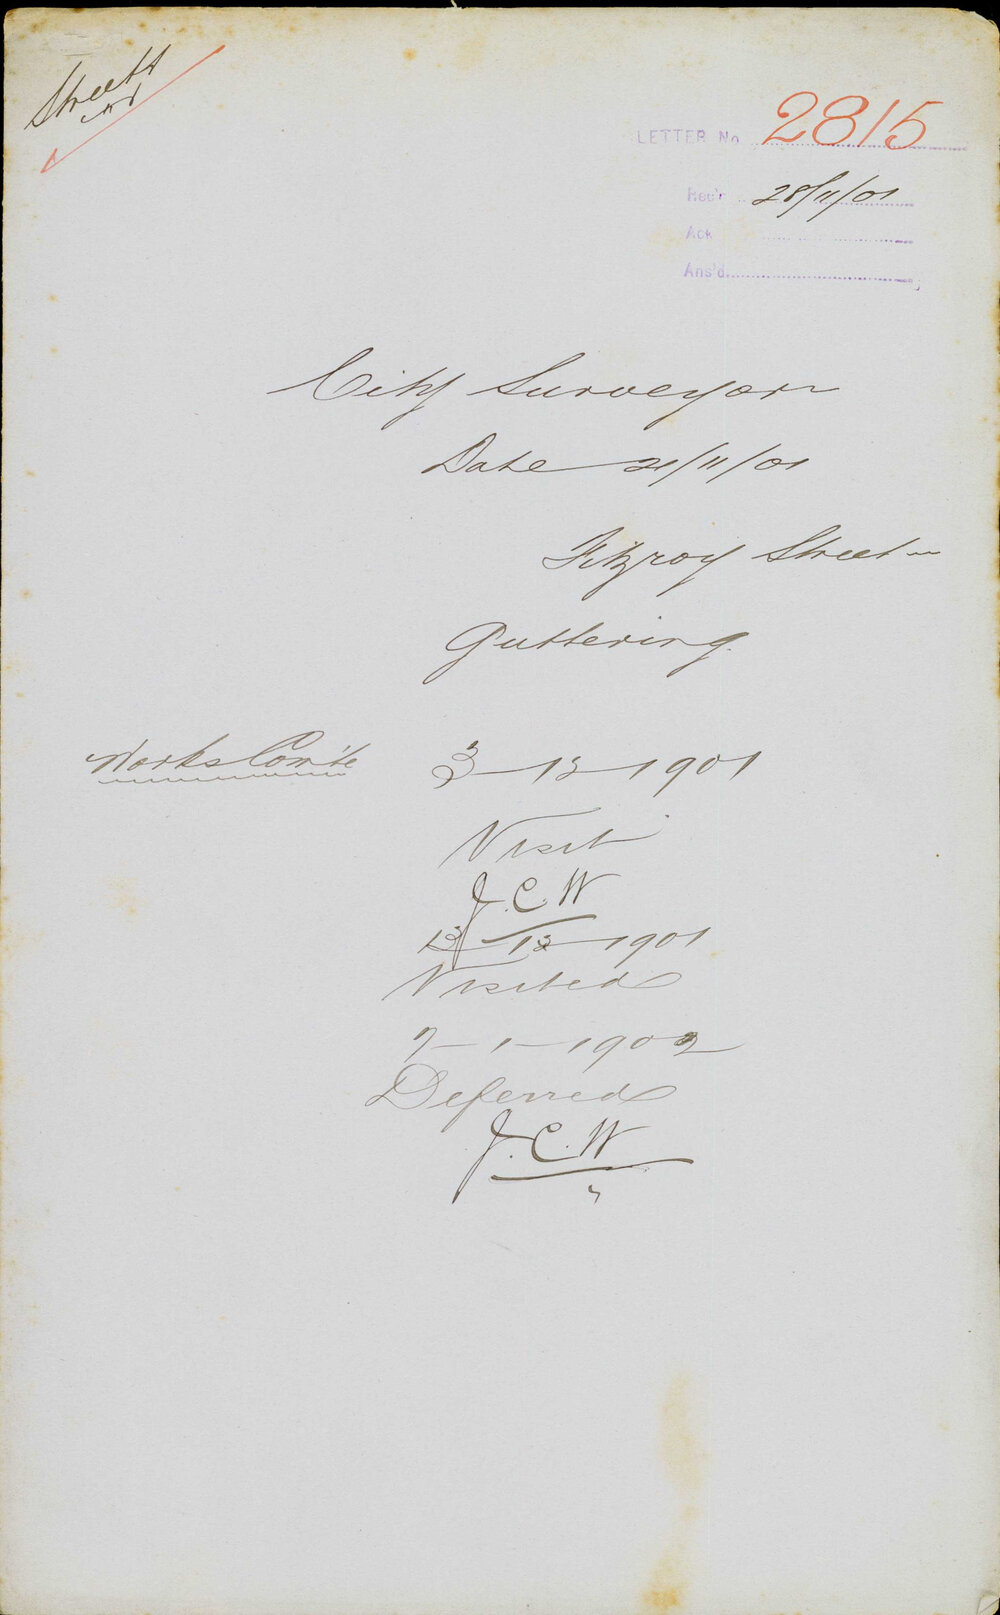 Streets
LETTER No 2815
Rec'd 28/11/01
Ack
Ans'd
City Surveyor
Date 21/11/01
Fitzroy Street
Guttering.
Works Com'te 3-12-1901
Visit
J.C.W
13-12-1901
Visited
7-1-1902
Deferred
J.C.W